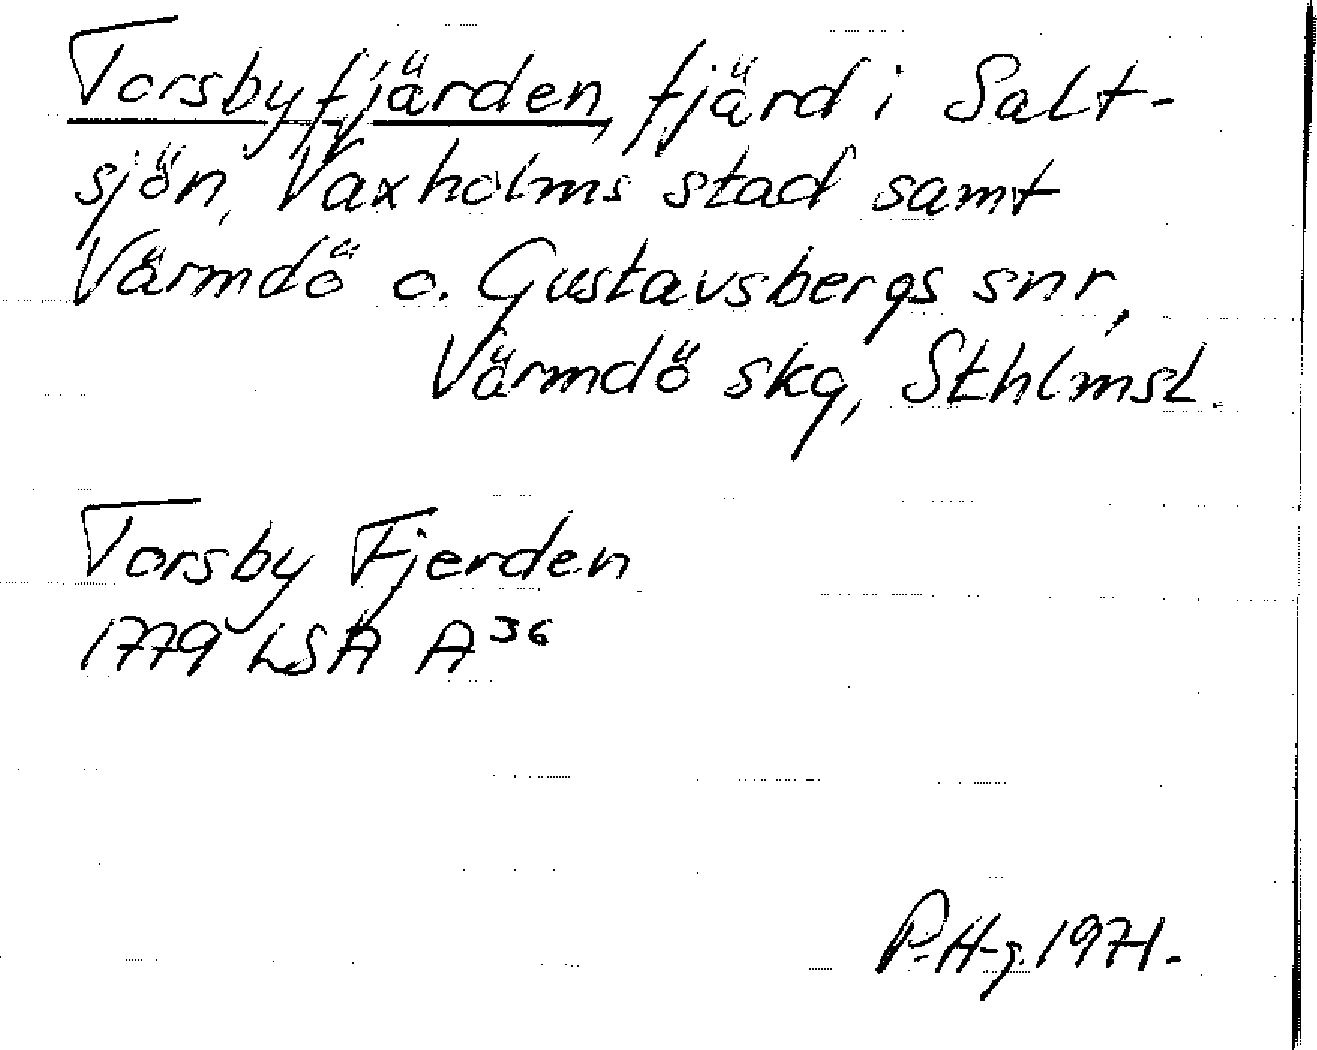 Torsbyfjärden, fjärd i Salt-
sjön, Vaxholms stad samt
Värmdö o. Gustavsbergs snr,
Värmdö skg, Sthlmsl.
Torsby Fjerden
1779 LSA A36
P.H-g. 1971.